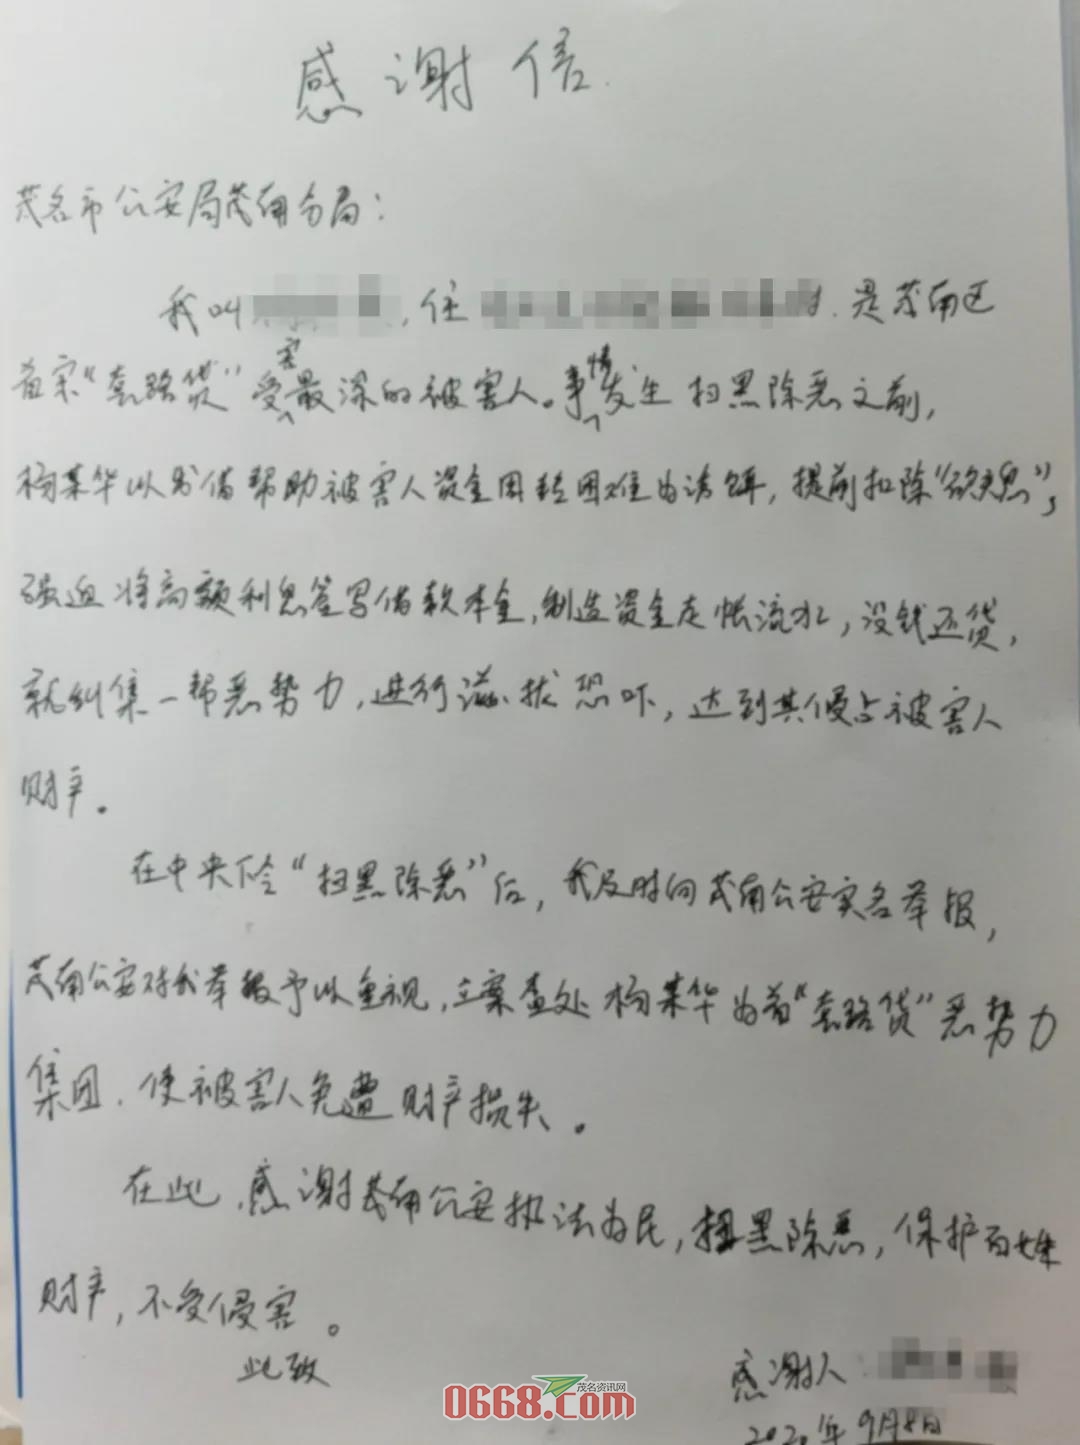 感谢信.
茂名市公安局茂南分局：
我叫，住 是茂南区
首宗“套路贷”受害最深的被害人。事情发生扫黑除恶之前，
杨某华以出借帮助被害人资金周转困难为诱饵，提前扣除“砍头息”，
强迫将高额利息签写借款本金，制造资金走帐流水，没钱还贷，
就纠集一帮恶势力，进行滋扰恐吓，达到其侵占被害人
财产。
在中央下令“扫黑除恶”后，我及时向茂南公安实名举报，
茂南公安对我举报予以重视，立案查处杨某华为首“套路贷”恶势力
集团，使被害人免遭财产损失。
在此，感谢茂南公安执法为民，扫黑除恶，保护百姓
财产，不受侵害。
此致
感谢人
2020年9月8日
茂名资讯网
0668.com